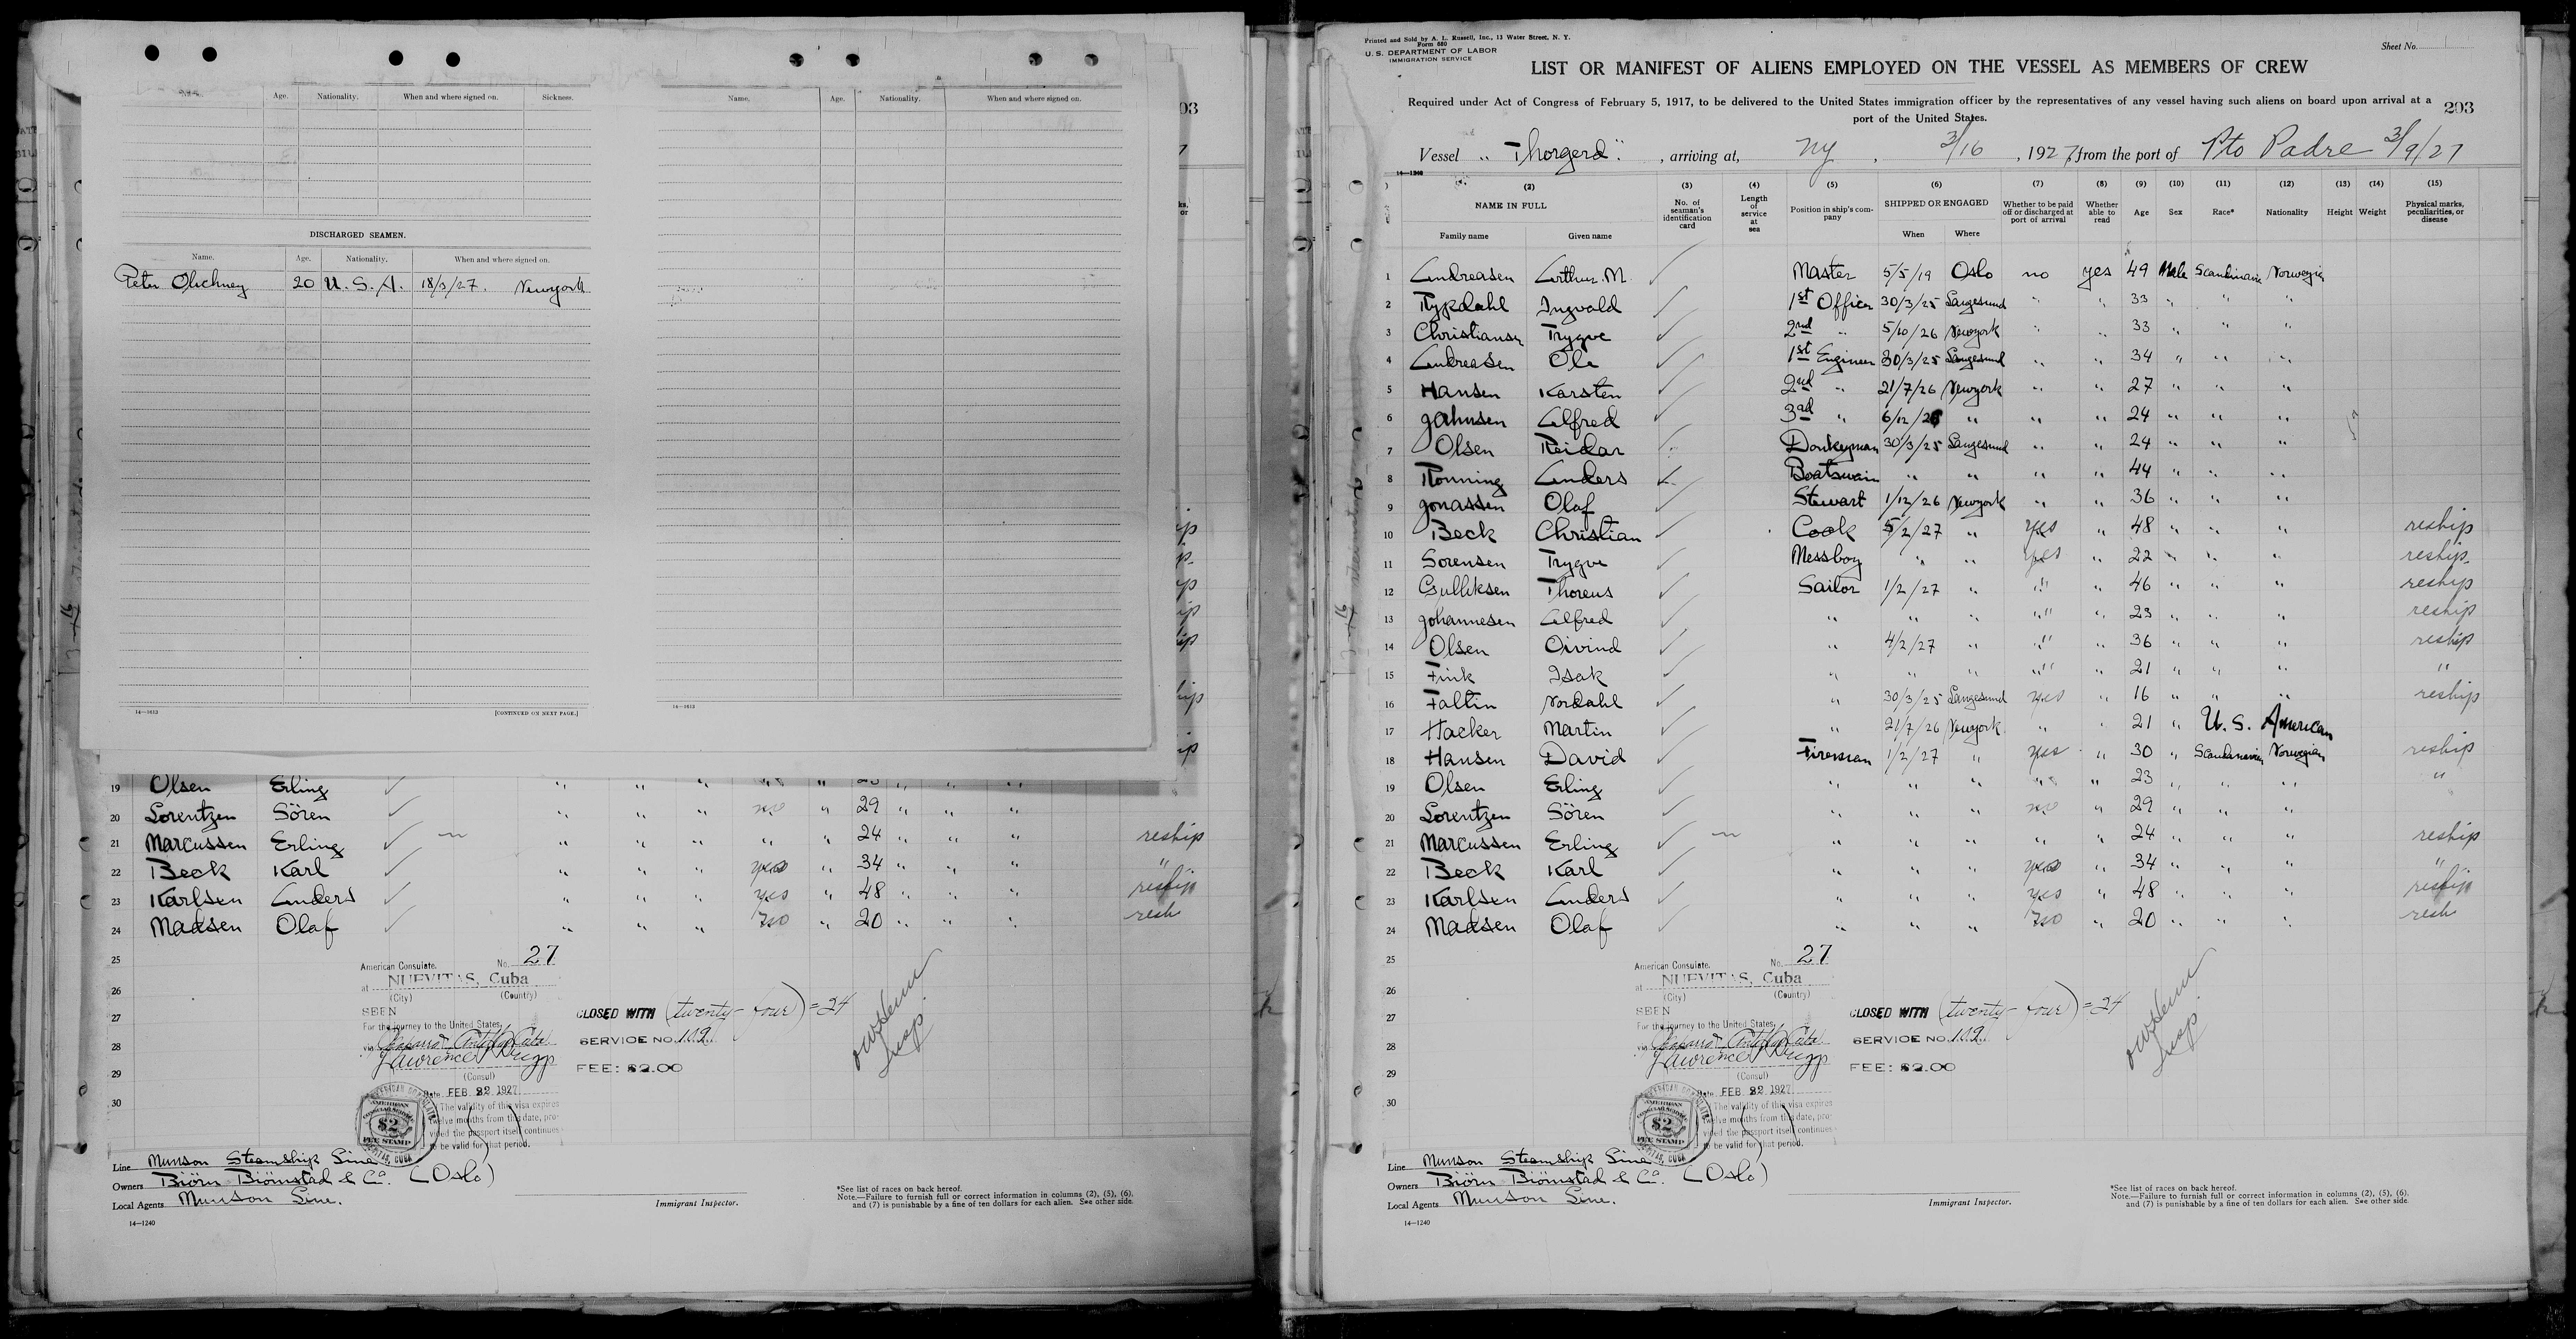 Age. Nationality. When and where signed on. Sickness.
Name. Age. Nationality. When and where signed on.
DISCHARGED SEAMEN.
Name. Age. Nationality. When and where signed on.
Peter Olichney 20 U.S.A. 18/3/27. Newyork
14—1613 [CONTINUED ON NEXT PAGE.] 14—1613
19 Olsen Erling ✓ " " " " "
20 Lorentzen Sören ✓ " " " no " 29 " " "
21 Marcussen Erling ✓ " " " " " 24 " " " reship
22 Beck Karl ✓ " " " yes " 34 " " " "
23 Karlsen Anders ✓ " " " yes " 48 " " " reship
24 Madsen Olaf ✓ " " " no " 20 " " " resh
25
26
27
28
29
30
American Consulate. No. 27
at NUEVITAS, Cuba
(City) (Country)
SEEN
For the journey to the United States,
via
Lawrence
(Consul)
Date FEB 22 1927
The validity of this visa expires
twelve months from this date, pro-
vided the passport itself continues
to be valid for that period.
AMERICAN CONSULAR SERVICE $2 FEE STAMP
CLOSED WITH (twenty-four) = 24
SERVICE NO. 109
FEE: $2.00
Line Munson Steamship Line
Owners Biörn Biörnstad & Co. (Oslo)
Local Agents Munson Line.
14—1240
Immigrant Inspector.
*See list of races on back hereof.
Note.—Failure to furnish full or correct information in columns (2), (5), (6).
and (7) is punishable by a fine of ten dollars for each alien. See other side.
Printed and Sold by A. L. Russell, Inc., 13 Water Street, N. Y.
Form 680
U. S. DEPARTMENT OF LABOR
IMMIGRATION SERVICE
Sheet No.
LIST OR MANIFEST OF ALIENS EMPLOYED ON THE VESSEL AS MEMBERS OF CREW
Required under Act of Congress of February 5, 1917, to be delivered to the United States immigration officer by the representatives of any vessel having such aliens on board upon arrival at a
port of the United States.
203
Vessel "Thorgerd". , arriving at, NY , 3/16 , 1927, from the port of Pto Padre 3/9/27
14—1240
(2) (3) (4) (5) (6) (7) (8) (9) (10) (11) (12) (13) (14) (15)
NAME IN FULL
Family name Given name
No. of seaman's identification card
Length of service at sea
Position in ship's company
SHIPPED OR ENGAGED
When Where
Whether to be paid off or discharged at port of arrival
Whether able to read
Age Sex Race* Nationality Height Weight
Physical marks, peculiarities, or disease
1 Andreasen Arthur M. ✓ Master 5/5/19 Oslo no yes 49 Male Scandinavia Norwegia
2 Rypdahl Ingvald ✓ 1st Officer 30/3/25 Langesund " " 33 " " "
3 Christiansen Trygve ✓ 2nd " 5/10/26 Newyork " " 33 " " "
4 Andreasen Ole ✓ 1st Engineer 30/3/25 Langesund " " 34 " " "
5 Hansen Karsten ✓ 2nd " 21/7/26 Newyork " " 27 " " "
6 Jahnsen Alfred ✓ 3ad " 6/12/26 " " " 24 " " "
7 Olsen Reidar Donkeyman 30/3/25 Langesund " " 24 " " "
8 Rönning Anders ✓ Boatswain " " " " 44 " " "
9 Jonassen Olaf ✓ Stewart 1/12/26 Newyork " " 36 " " "
10 Beck Christian ✓ Cook 5/2/27 " yes " 48 " " " reship
11 Sorensen Trygve ✓ Messboy " " yes " 22 " " " reship.
12 Gulliksen Thoreus ✓ Sailor 1/2/27 " " " 46 " " " reship
13 Johannesen Alfred ✓ " " " " " 23 " " " reship
14 Olsen Oivind ✓ " 4/2/27 " " " 36 " " " reship
15 Fink Isak ✓ " " " " " 21 " " " "
16 Faltin Nordahl ✓ " 30/3/25 Langesund yes " 16 " " " reship
17 Hacker Martin ✓ " 21/7/26 Newyork " " 21 " U.S. American
18 Hansen David ✓ Fireman 1/2/27 " yes " 30 " Scandanavian Norwegian reship
19 Olsen Erling ✓ " " " " " 23 " " " "
20 Lorentzen Sören ✓ " " " no " 29 " " "
21 Marcussen Erling ✓ " " " " " 24 " " " reship
22 Beck Karl ✓ " " " yes " 34 " " " "
23 Karlsen Anders ✓ " " " yes " 48 " " " reship
24 Madsen Olaf ✓ " " " no " 20 " " " resh
25
26
27
28
29
30
American Consulate. No. 27
at NUEVITAS, Cuba
(City) (Country)
SEEN
For the journey to the United States,
via
Lawrence
(Consul)
Date FEB 22 1927
The validity of this visa expires
twelve months from this date, pro-
vided the passport itself continues
to be valid for that period.
AMERICAN CONSULAR SERVICE $2 FEE STAMP
CLOSED WITH (twenty-four) = 24
SERVICE NO. 109
FEE: $2.00
Line Munson Steamship Line
Owners Biörn Biörnstad & Co. (Oslo)
Local Agents Munson Line.
14—1240
Immigrant Inspector.
*See list of races on back hereof.
Note.—Failure to furnish full or correct information in columns (2), (5), (6).
and (7) is punishable by a fine of ten dollars for each alien. See other side.